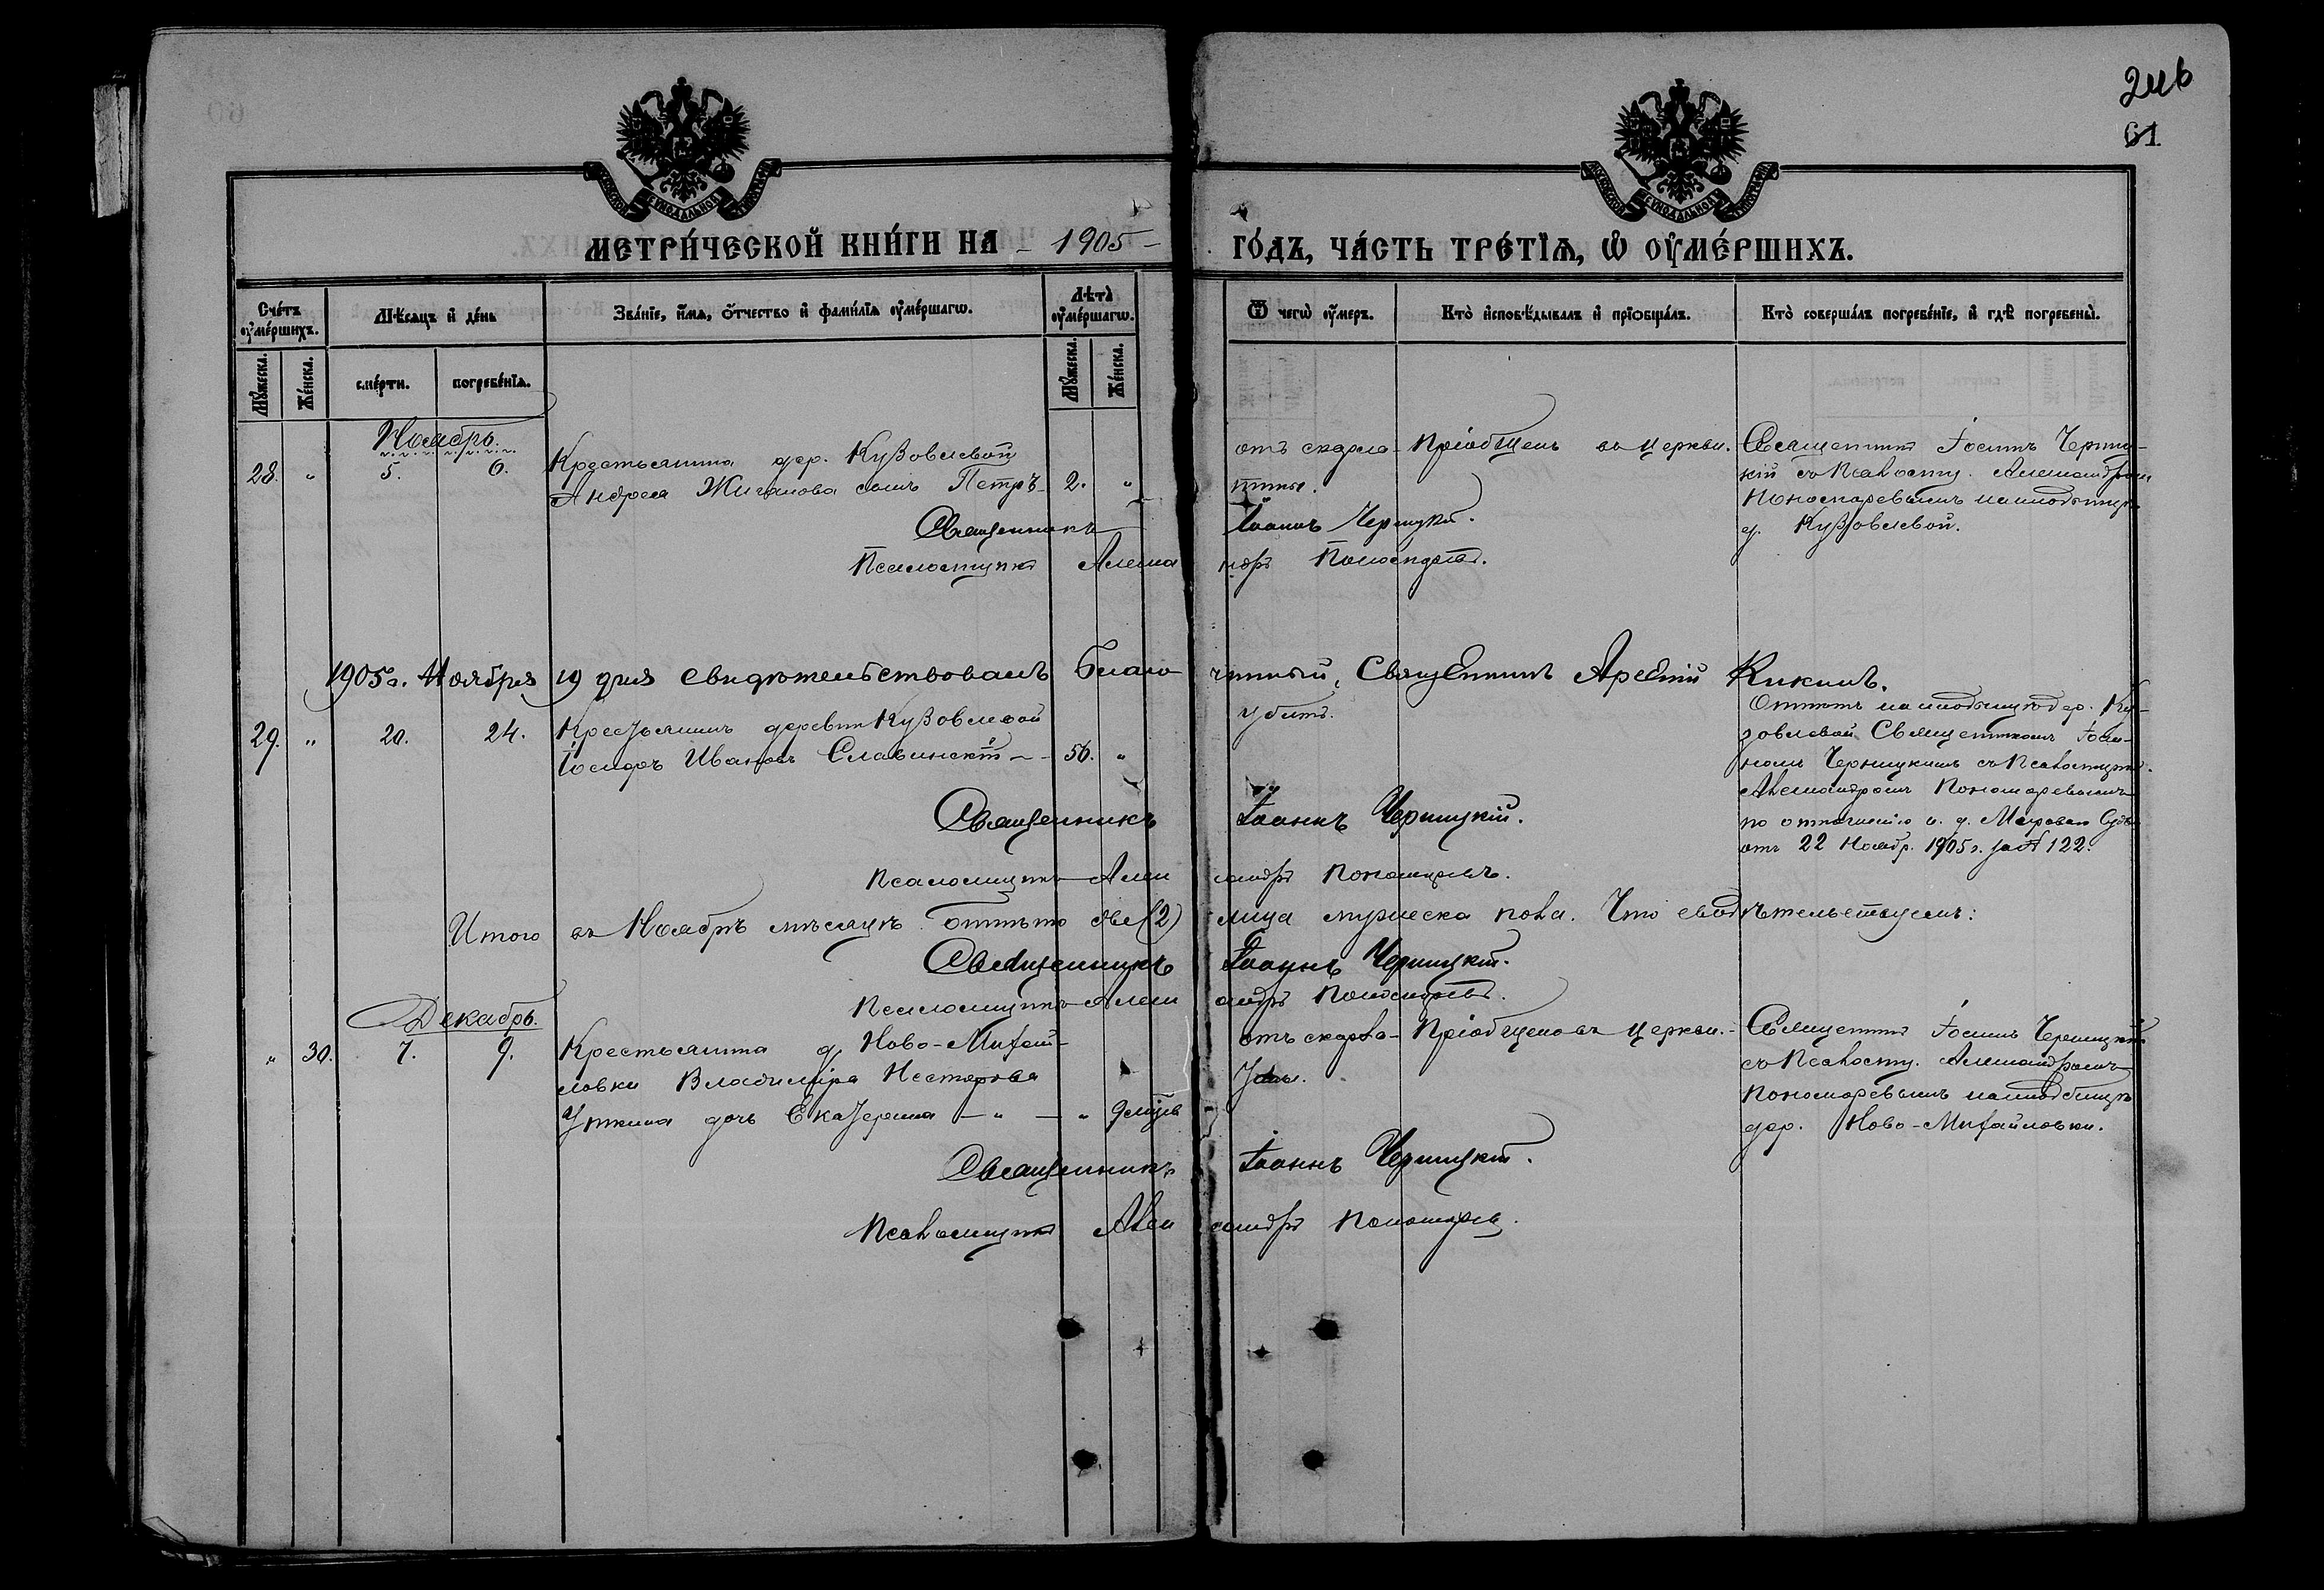 246
61
МЕТРИ́ЧЕСКОЙ КНИ́ГИ НА – 1905 – ГО́ДЪ, ЧА́СТЬ ТРЕ́ТІѦ, Ѡ҆ ОУ҆МЕ́РШИХЪ.
Сче́тъ оу҆ме́ршихъ.
Мѣ́сѧцъ и҆ де́нь
Зва́нїе, и҆́мѧ, ѻ҆́тчество и҆ фами́лїѧ оу҆ме́ршагѡ.
Лѣ́та оу҆ме́ршагѡ.
Ѿ чегѡ̀ оу҆́меръ.
Кто̀ и҆сповѣ́дывалъ и҆ прїѡбща́лъ.
Кто̀ соверша́лъ погребе́нїе, и҆ гдѣ̀ погребены̀.
Мꙋ́жеска.
Же́нска.
сме́рти.
погребе́нїѧ.
Мꙋ́жеска.
Же́нска.
Ноябрь.
28. " 5. 6. Крестьянина дер. Кузовлевой
Андрея Жиганова сынъ Петръ 2. "
отъ скарла-
тины.
Пріобщенъ въ церкви.
Священникъ Іоаннъ Черниц-
кій съ Псаломщ. Александром
Пономаревымъ на кладбищѣ
д. Кузовлевой.
Священникъ Іоаннъ Черницкій.
Псаломщикъ Александръ Пономаревъ.
1905 г. Ноября 19 дня свидѣтельствовалъ Благочинный, Священникъ Арсеній Кикинъ.
29. " 20. 24. Крестьянинъ деревни Кузовлевой
Ивановъ Славинскій – 56. "
убитъ.
Отпѣтъ на кладбищѣ дер. Ку-
зовлевой Священникомъ Іоан-
номъ Черницкимъ съ Псаломщик.
Александромъ Пономаревымъ
по отношенію и. д. Мирового Судьи
отъ 22 Ноябр. 1905 г. за № 122.
Священникъ Іоаннъ Черницкій.
Псаломщикъ Александръ Пономаревъ.
Итого въ Ноябрѣ мѣсяцѣ отпѣто два (2) лица мужеска пола. Что свидѣтельствуемъ:
Священникъ Іоаннъ Черницкій.
Псаломщикъ Александръ Пономаревъ.
Декабрь.
" 30. 7. 9. Крестьянина д. Ново-Михай-
ловки Владиміра Нестерова
дочь Екатерина – " – "
отъ скарла-
Пріобщена въ церкви.
Священникъ Іоаннъ Черницкій
съ Псаломщ. Александромъ
Пономаревымъ на кладбищѣ
дер. Ново-Михайловки.
Священникъ Іоаннъ Черницкій.
Псаломщикъ Александръ Пономаревъ.